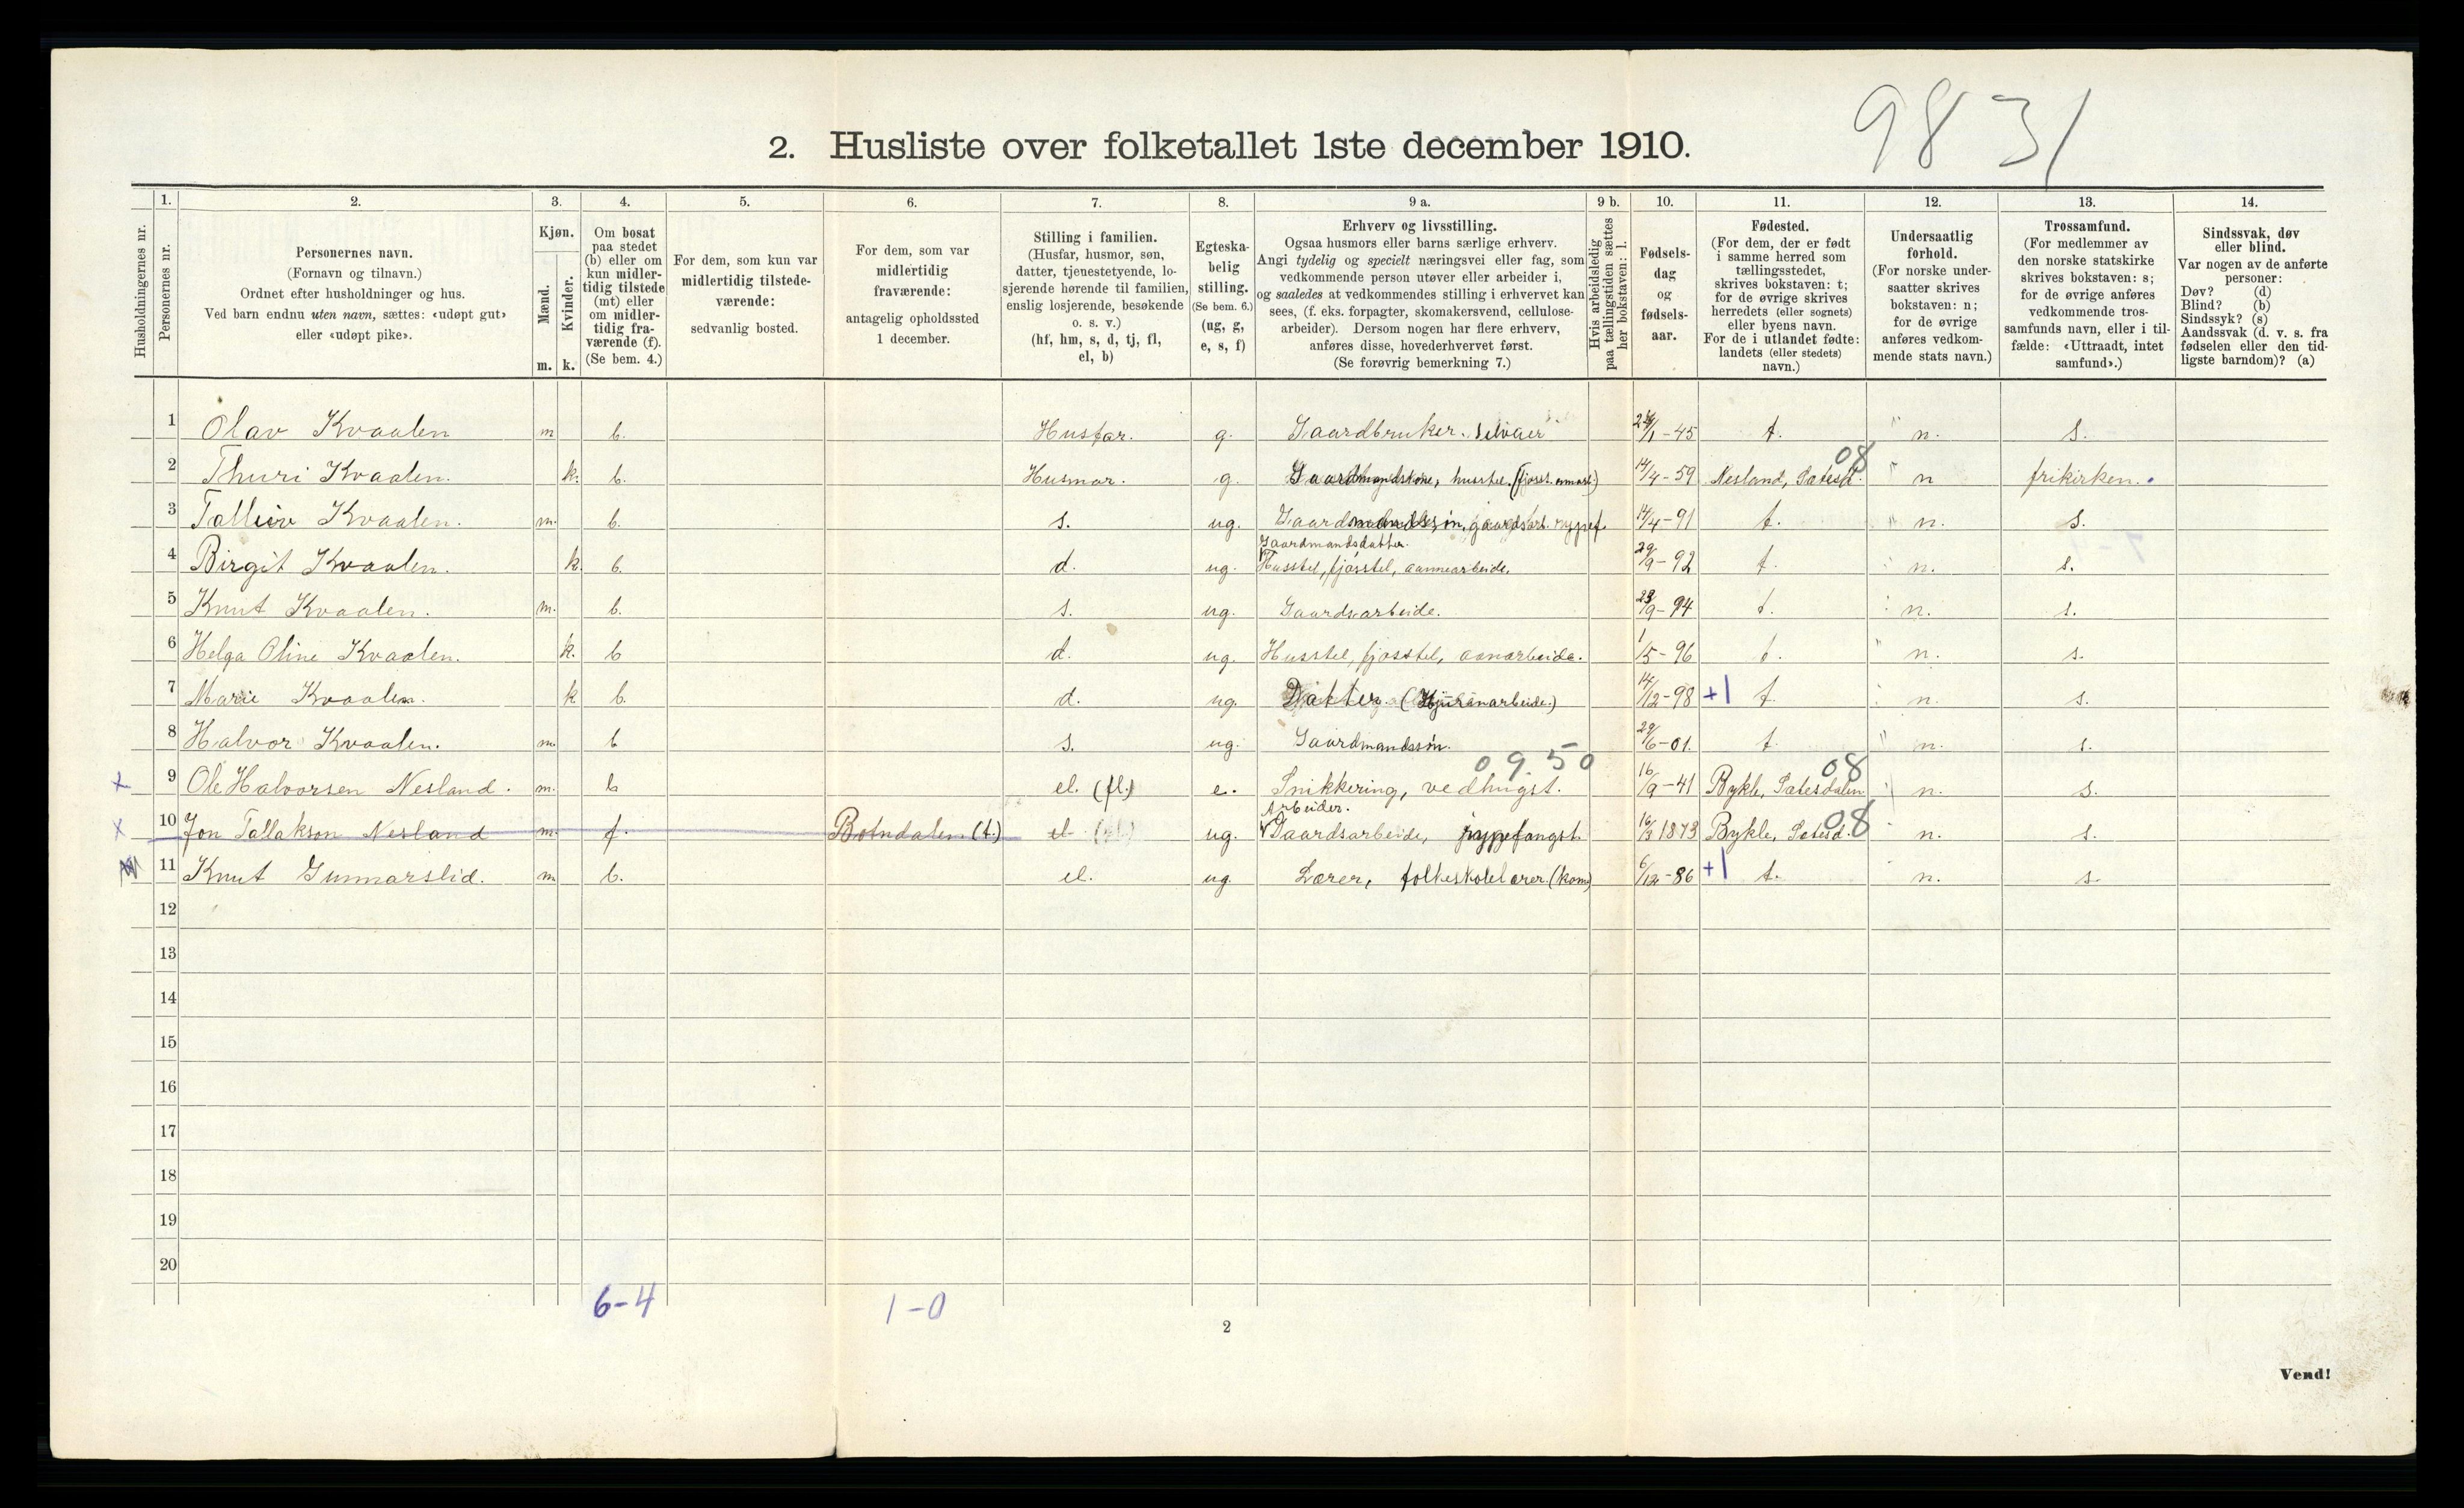 9831
2. Husliste over folketallet 1ste december 1910.
Husholdningernes nr.
1. Personernes nr.
2. Personernes navn.
(Fornavn og tilnavn.)
Ordnet efter husholdninger og hus.
Ved barn endnu uten navn, sættes: «udøpt gut»
eller «udøpt pike».
3. Kjøn.
Mænd. m.
Kvinder. k.
4. Om bosat
paa stedet
(b) eller om
kun midler-
tidig tilstede
(mt) eller
om midler-
tidig fra-
værende (f).
(Se bem. 4.)
5. For dem, som kun var
midlertidig tilstede-
værende:
sedvanlig bosted.
6. For dem, som var
midlertidig
fraværende:
antagelig opholdssted
1 december.
7. Stilling i familien.
(Husfar, husmor, søn,
datter, tjenestetyende, lo-
sjerende hørende til familien,
enslig losjerende, besøkende
o. s. v.)
(hf, hm, s, d, tj, fl,
el, b)
8. Egteska-
belig
stilling.
(Se bem. 6.)
(ug, g,
e, s, f)
9 a. Erhverv og livsstilling.
Ogsaa husmors eller barns særlige erhverv.
Angi tydelig og specielt næringsvei eller fag, som
vedkommende person utøver eller arbeider i,
og saaledes at vedkommendes stilling i erhvervet kan
sees, (f. eks. forpagter, skomakersvend, cellulose-
arbeider). Dersom nogen har flere erhverv,
anføres disse, hovederhvervet først.
(Se forøvrig bemerkning 7.)
9 b. Hvis arbeidsledig
paa tællingstiden sættes
her bokstaven: l.
10. Fødsels-
dag
og
fødsels-
aar.
11. Fødested.
(For dem, der er født
i samme herred som
tællingsstedet,
skrives bokstaven: t;
for de øvrige skrives
herredets (eller sognets)
eller byens navn.
For de i utlandet fødte:
landets (eller stedets)
navn.)
12. Undersaatlig
forhold.
(For norske under-
saatter skrives
bokstaven: n;
for de øvrige
anføres vedkom-
mende stats navn.)
13. Trossamfund.
(For medlemmer av
den norske statskirke
skrives bokstaven: s;
for de øvrige anføres
vedkommende tros-
samfunds navn, eller i til-
fælde: «Uttraadt, intet
samfund».)
14. Sindssvak, døv
eller blind.
Var nogen av de anførte
personer:
Døv? (d)
Blind? (b)
Sindssyk? (s)
Aandssvak (d. v. s. fra
fødselen eller den tid-
ligste barndom)? (a)
1 Olav Kvaalen m b. Husfar. g. Gaardbruker. Selveier /1-45 t. n. s.
2 Thuri Kvaalen. k. b. Husmor. g. Gaardmandskone, husstel. 14/4-59 Nesland, Sætesd. 08 n frikirken.
3 Talleiv Kvaalen. m. b. s. ug. Gaardmandssøn, gaardsarb. rypef. 14/4-91 t. n. s.
4 Birgit Kvaalen. k. b. d. ug. Gaardmandsdatter.
Husstel, fjøsstel, aannearbeide. 29/9-92 t. n. s.
5 Knut Kvaalen. m. b. s. ug. Gaardsarbeide. 23/9-94 t. n. s.
6 Helga Oline Kvaalen. k. b d. ug. Husstel, fjøsstel, aanarbeide. 1/5-96 t. n. s.
7 Marie Kvaalen. k b. d. ug. Datter. 14/12-98 +1 t. n. s.
8 Halvor Kvaalen. m. b s. ug. Gaardmandssøn. 29/6-01. t. n. s.
09.50
9 Ole Halvorsen Nesland. m. b el. (fl.) e. Snikkering, vedhugst. 16/9-41 Bykle, Sætesdalen 08 n. s.
10 Jon Tallakson Nesland m. f. Botndalen (t.) el ug. Arbeider.
Gaardsarbeide, rypefangst. 16/3 1873 Bykle, Sætesd. 08 n. s.
11 Knut Gunnarslid. m b. el. ug. Lærer, folkeskolelærer. (kom) 6/12-86 +1 t. n. s.
12
13
14
15
16
17
18
19
20
6-4 1-0
2
Vend!